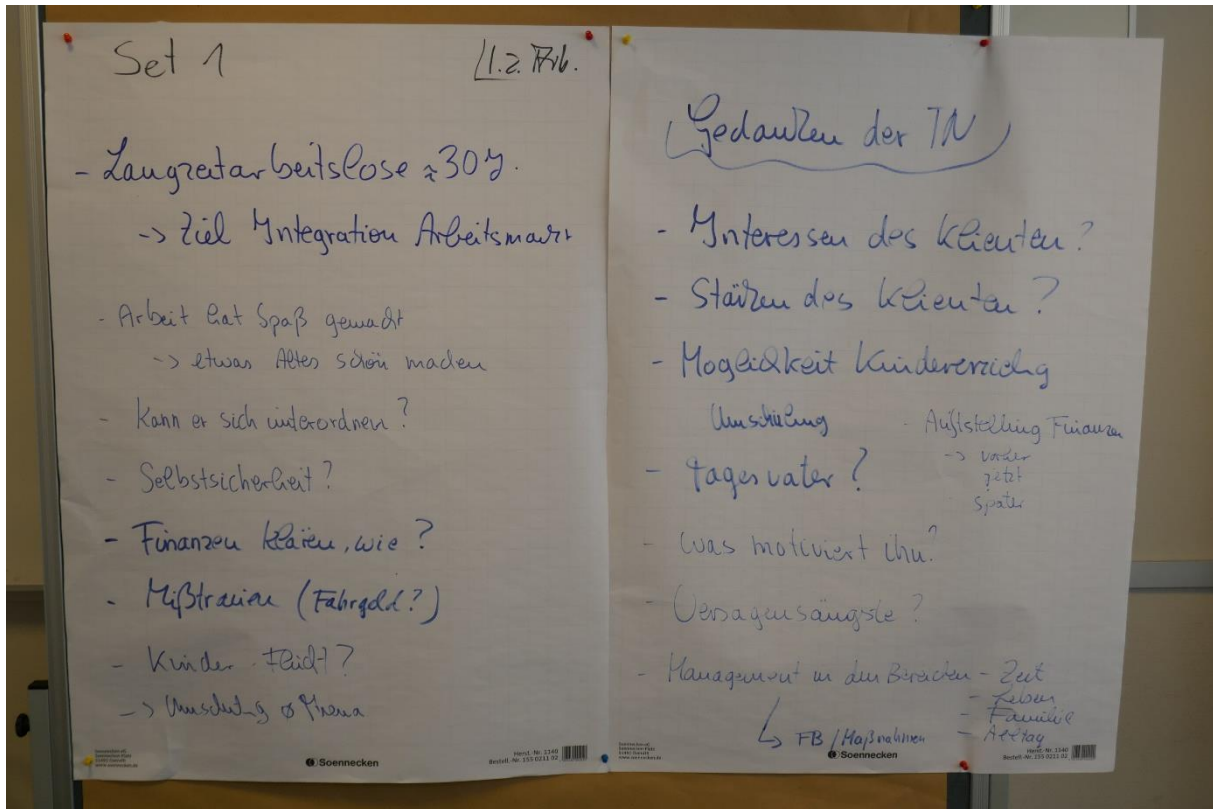 Set 1
- Langzeitarbeitslose ≈ 30 J.
-> Ziel Integration Arbeitsmarkt
- Arbeit hat Spaß gemacht
-> etwas Altes schön machen
- Kann er sich unterordnen?
- Selbstsicherheit?
- Finanzen klären, wie?
- Mißtrauen (Fahrgeld?)
- Kinder Flucht?
-> Umschulung ø Thema
Soennecken
Herst.-Nr. 2140
Bestell-Nr. 153 0211 02
www.soennecken.de
Gedanken der TN
- Interessen des Klienten?
- Stärken des Klienten?
- Moglichkeit Kindererziehg
Umschulung
- Tagesvater?
- Aufstellung Finanzen
-> vorher
jetzt
später
- Was motiviert ihn?
- Versagensängste?
- Management in den Bereichen - Zeit
- Leben
- Familie
- Alltag
FB / Maßnahmen
Soennecken
Herst.-Nr. 2140
Bestell-Nr. 153 0211 02
www.soennecken.de